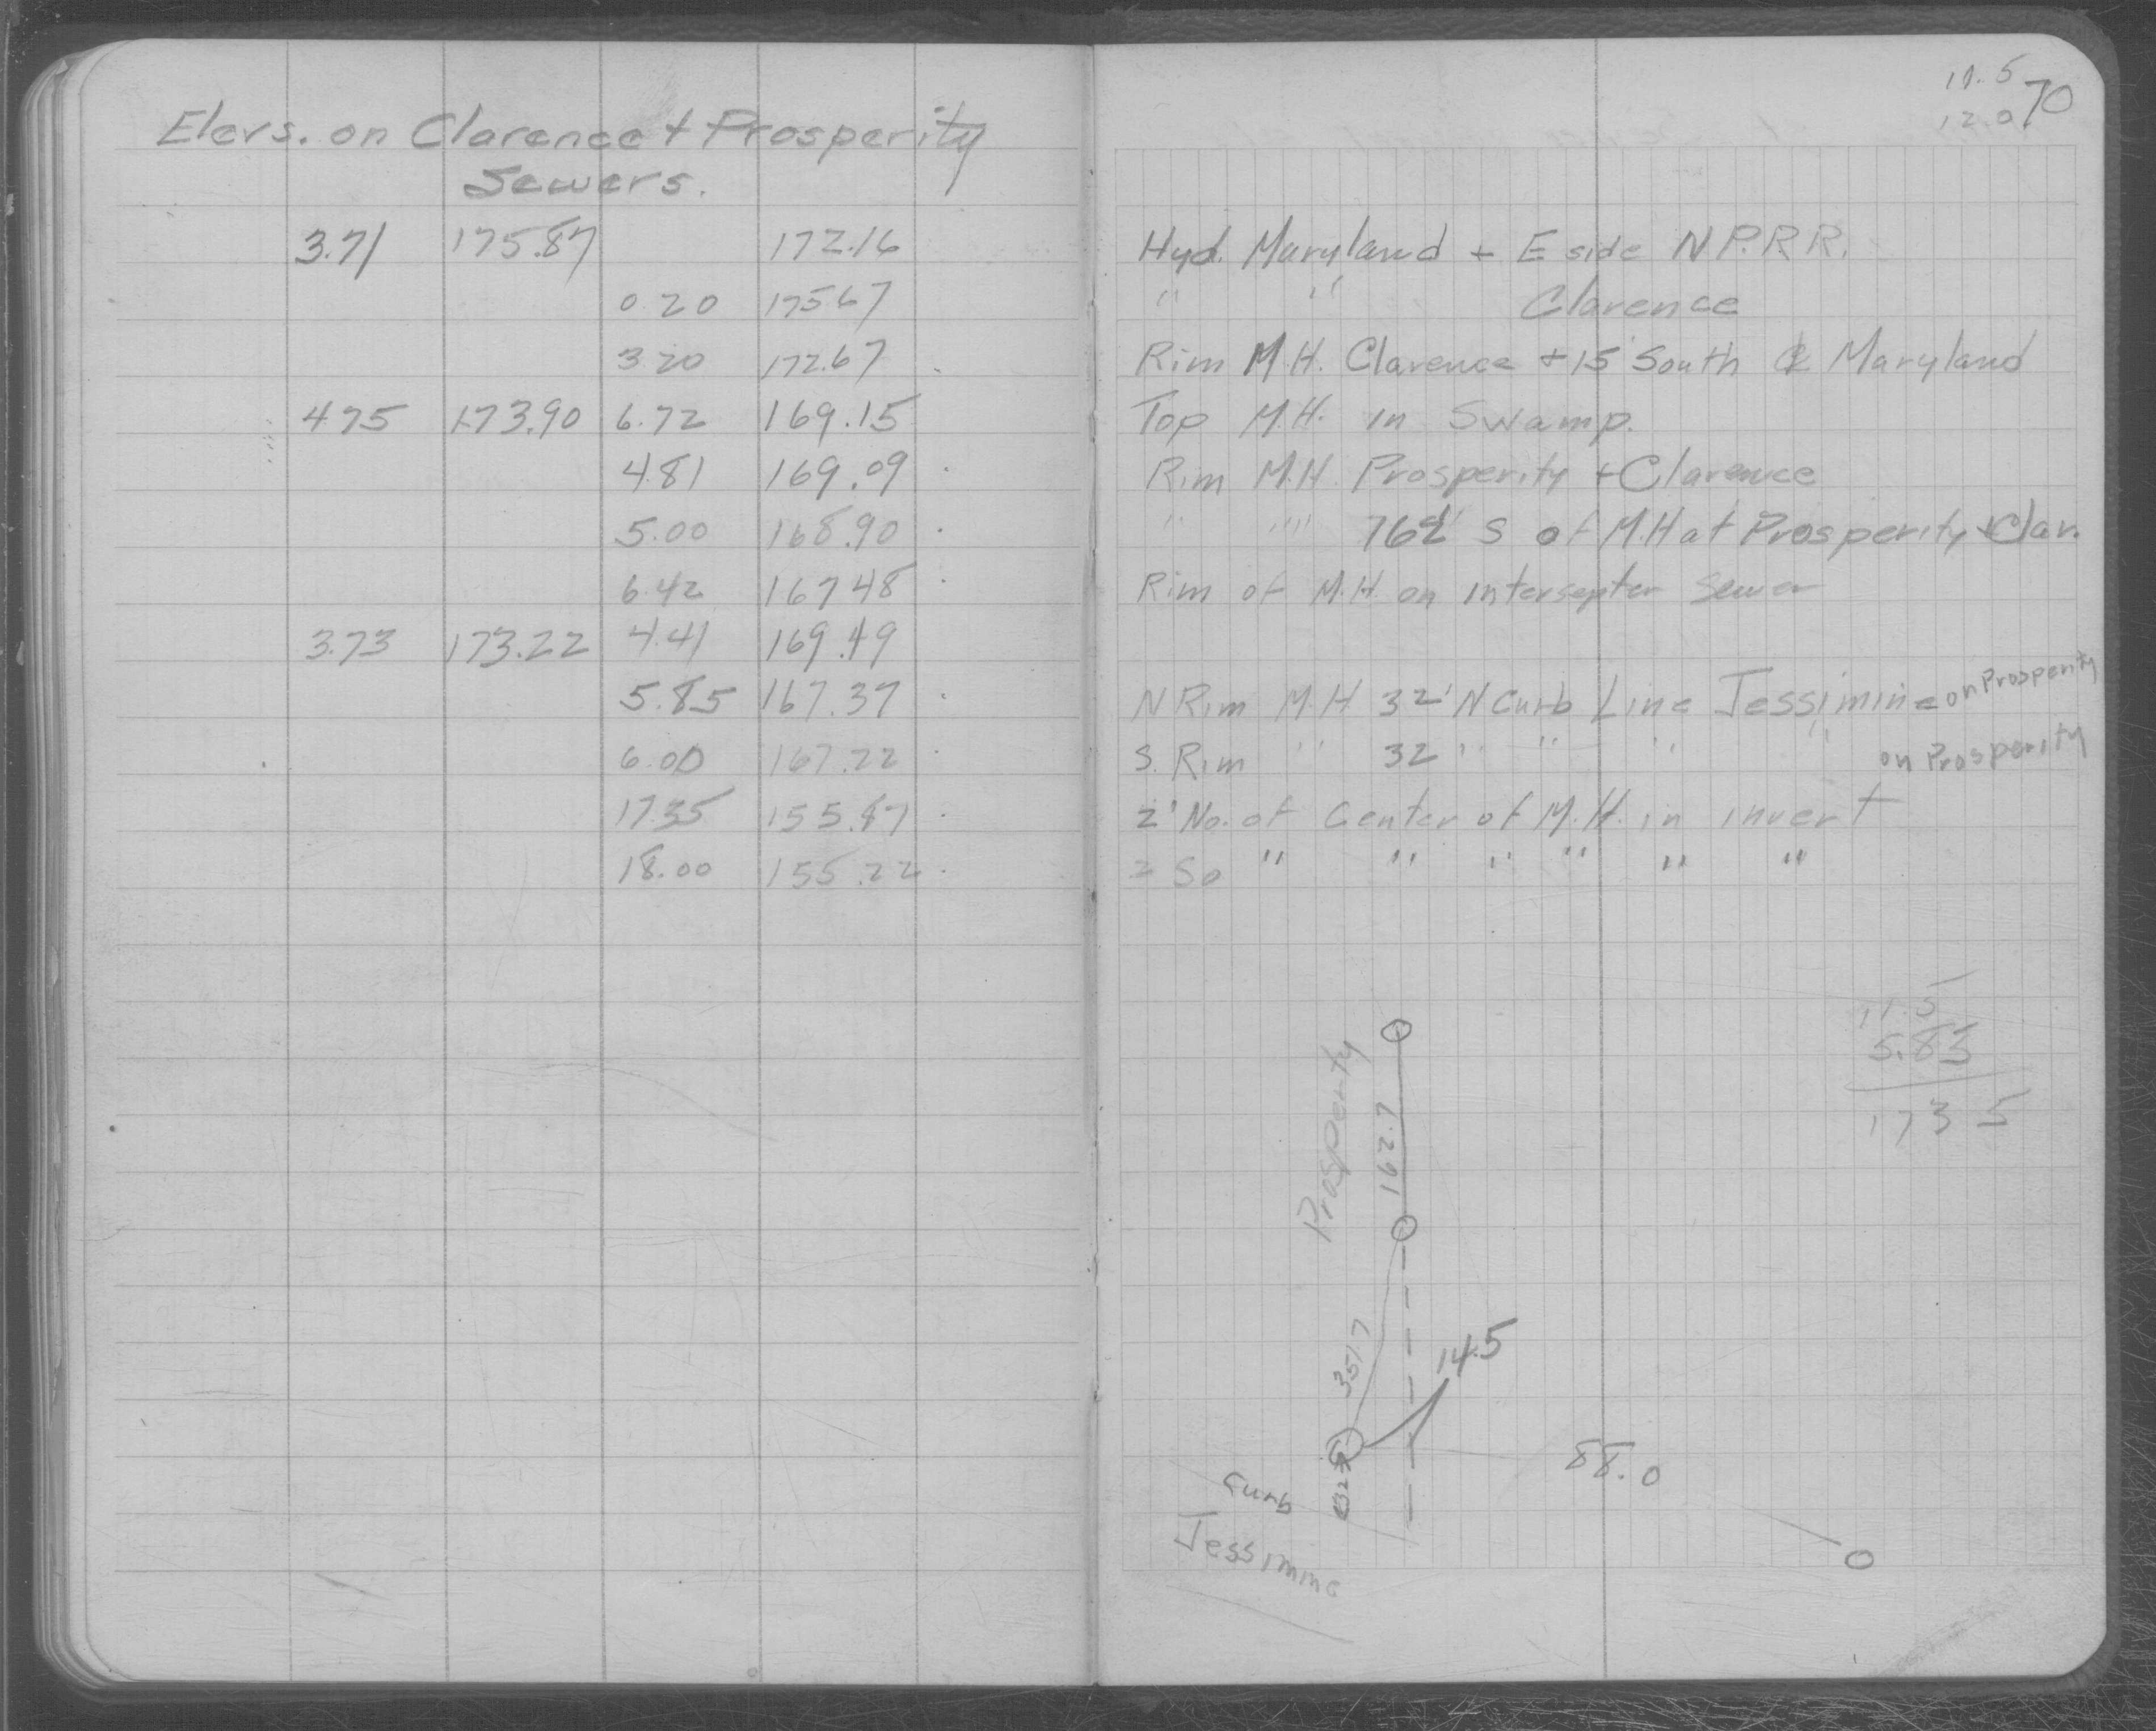 Elevs. on Clarence + Prosperity
Sewers.
3.71 175.87 172.16
0.20 175 67
3.20 172.67
4 75 173.90 6.72 169.15
4.81 169.09
5.00 168.90
6.42 167 48
3.73 173.22 4.41 169.49
5.85 167.37
6.00 167.22
17.35 155.87
18.00 155.22
11.5
12.0
70
Hyd. Maryland + E side N.P.R.R.
" " Clarence
Rim M.H. Clarence + 15' South ℄ Maryland
Top M.H. in Swamp.
Rim M.H. Prosperity + Clarence
" "" S of M.H at Prosperity + Clar.
Rim of M.H. on intersepter Sewer
N Rim M.H 32' N Curb Line Jessimine on Prosperity
S. Rim " 32 " " " " on Prosperity
2' No. of Center of M.H. in invert
2 So " " " " " "
11.5
5.85
17 3 5
Prosperity
162.7
351.7
14.5
88.0
Curb
Jessimine